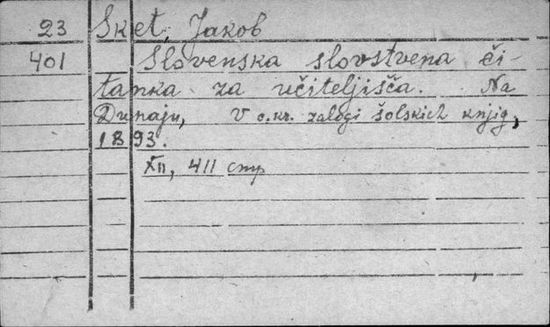 23 Sket, Jakob
401 Slovenska slovstvena či-
tanka za učiteljišča. Na
Dunaju, V c.kr. zalogi šolskich knjig,
1893.
XII, 411 стр